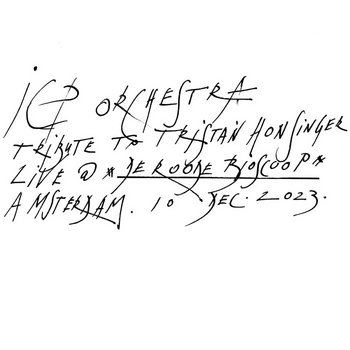 ICP ORCHESTRA
TRIBUTE TO TRISTAN HONSINGER
LIVE @ * DE ROODE BIOSCOOP *
AMSTERDAM. 10 DEC. 2023.